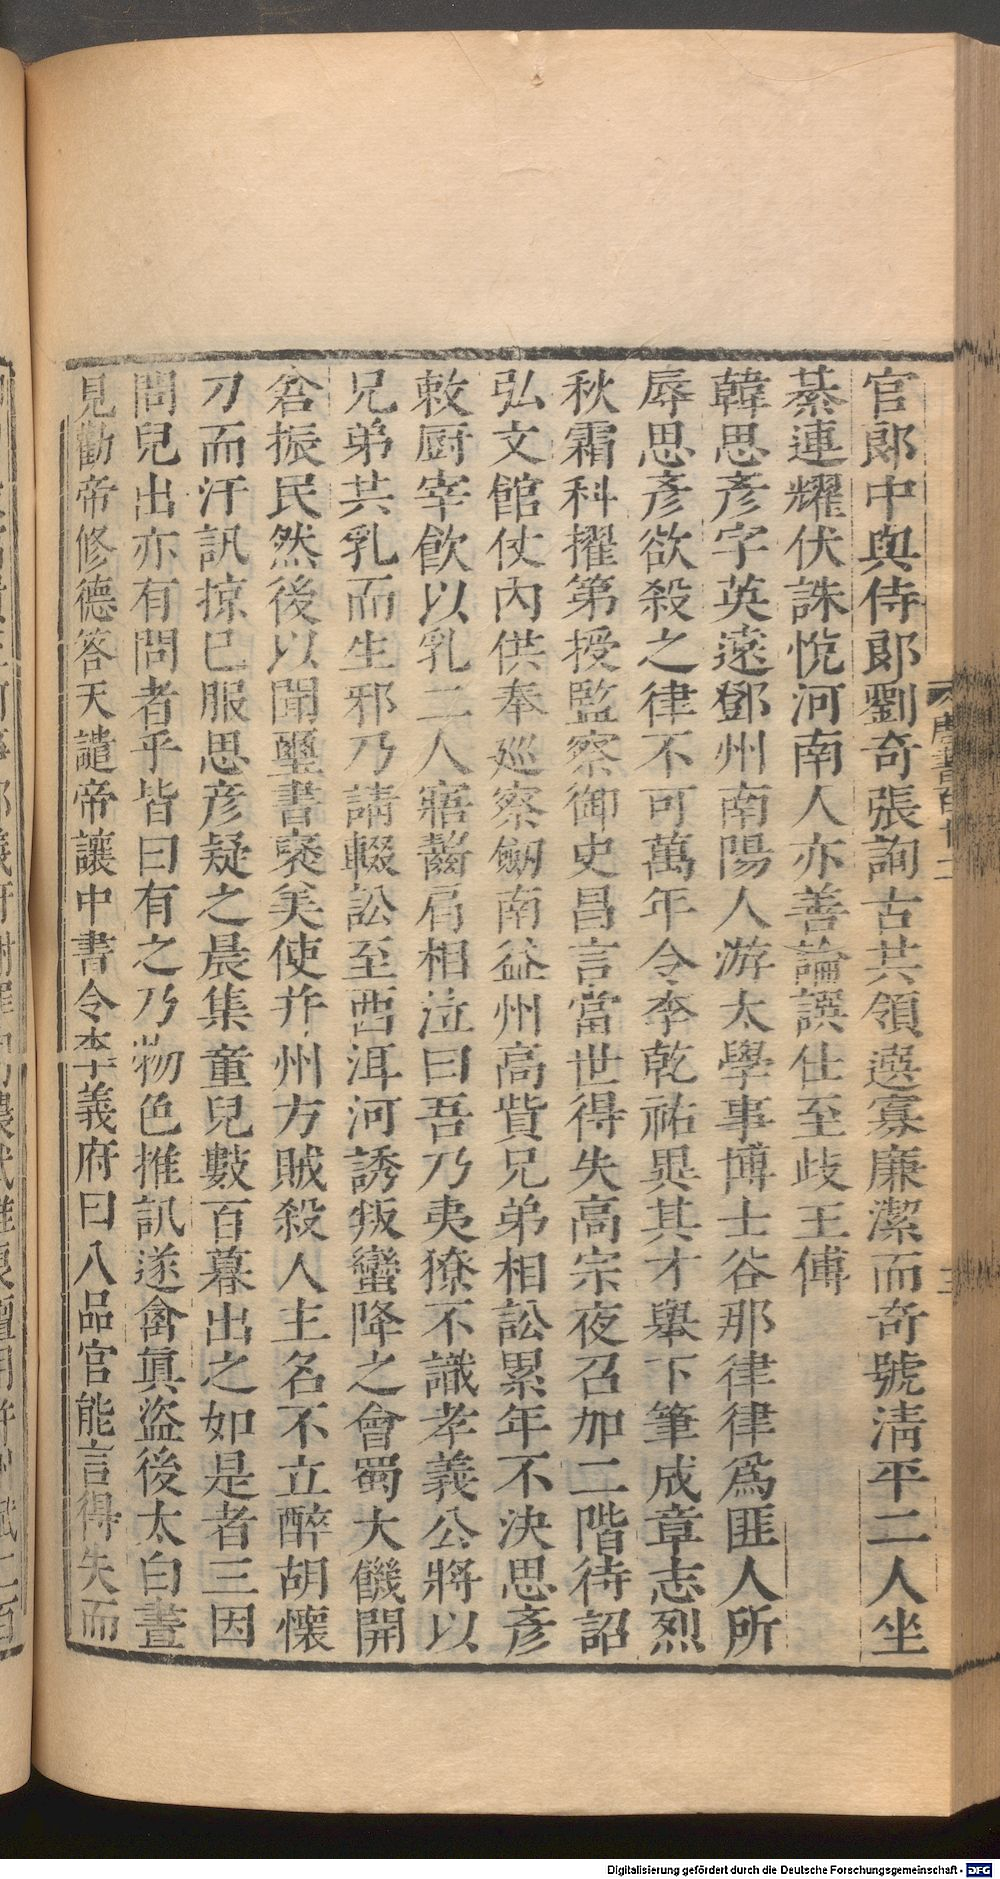 官郎中與侍郎劉奇張詢古共領選寡廉潔而奇號清平二人坐
綦連耀伏誅悅河南人亦善論譔仕至歧王傅
韓思彥字英遠鄧州南陽人游太學事博士谷那律律爲匪人所
辱思彥欲殺之律不可萬年令李乾祐異其才舉下筆成章志烈
秋霜科擢第授監察御史昌言當世得失高宗夜召加二階待詔
弘文館仗內供奉巡察劒南益州高貲兄弟相訟累年不決思彥
敕厨宰飲以乳二人寤齧肩相泣曰吾乃夷獠不識孝義公將以
兄弟共乳而生邪乃請輟訟至西洱河誘叛蠻降之會蜀大饑開
倉振民然後以聞璽書褒美使幷州方賊殺人主名不立醉胡懷
刀而汗訊掠已服思彥疑之晨集童兒數百暮出之如是者三因
問兒出亦有問者乎皆曰有之乃物色推訊遂禽眞盜後太白晝
見勸帝修德答天譴帝讓中書令李義府曰八品官能言得失而
Digitalisierung gefördert durch die Deutsche Forschungsgemeinschaft - DFG